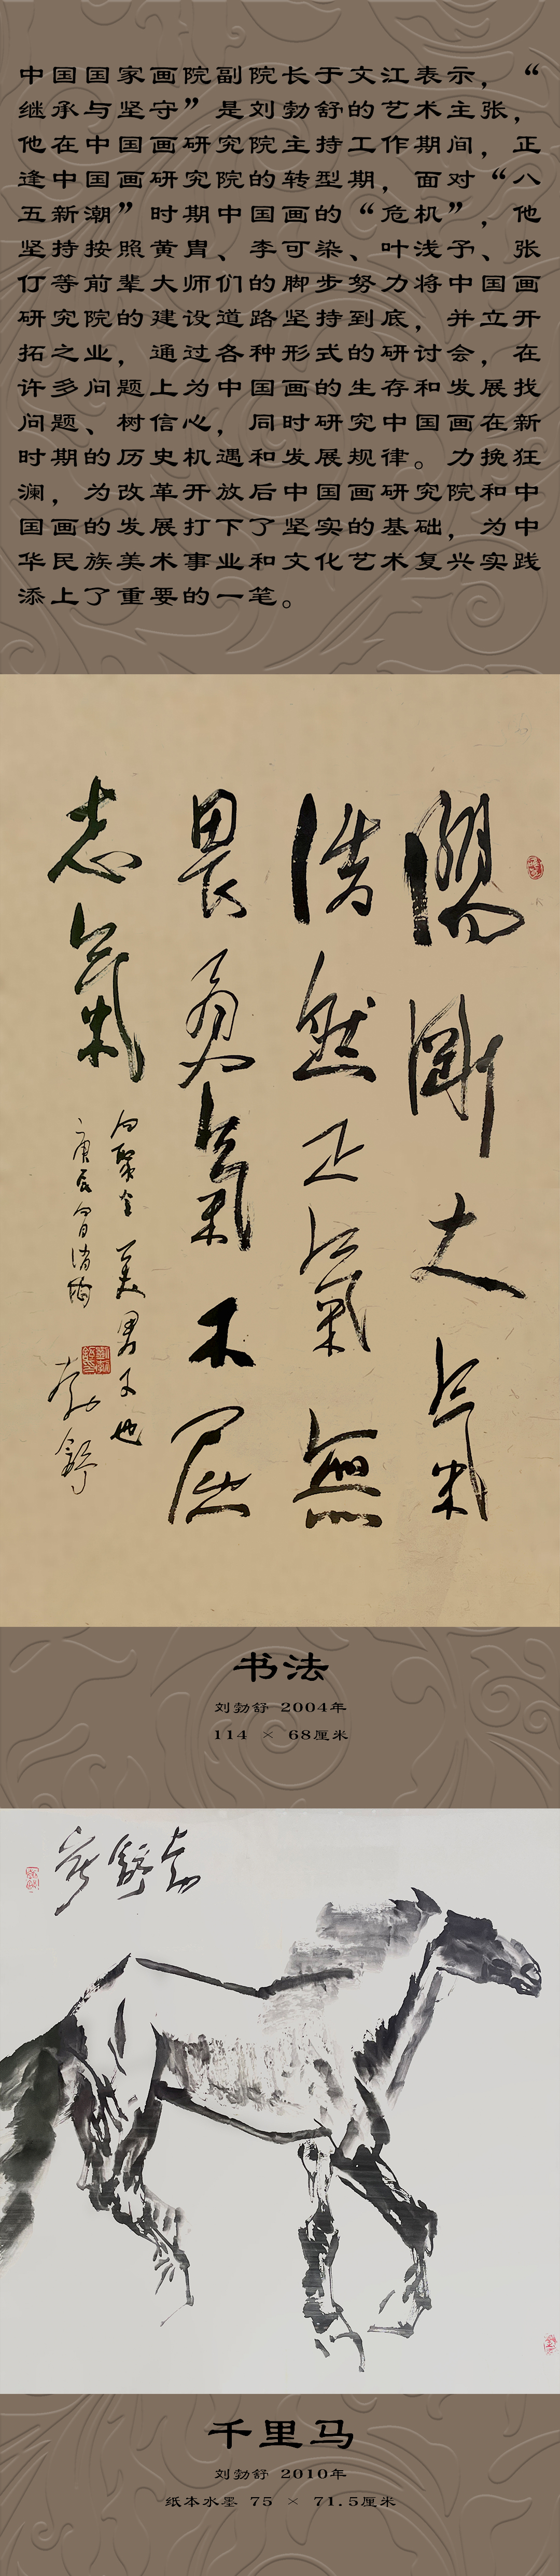 中国国家画院副院长于文江表示，“
继承与坚守”是刘勃舒的艺术主张，
他在中国画研究院主持工作期间，正
逢中国画研究院的转型期，面对“八
五新潮”时期中国画的“危机”，他
坚持按照黄胄、李可染、叶浅予、张
仃等前辈大师们的脚步努力将中国画
研究院的建设道路坚持到底，并立开
拓之业，通过各种形式的研讨会，在
许多问题上为中国画的生存和发展找
问题、树信心，同时研究中国画在新
时期的历史机遇和发展规律。力挽狂
澜，为改革开放后中国画研究院和中
国画的发展打下了坚实的基础，为中
华民族美术事业和文化艺术复兴实践
添上了重要的一笔。
陽剛大氣
浩然正氣無
畏勇氣不屈
志氣
美男子也
勃舒
书法
刘勃舒 2004年
114 × 68厘米
勃舒
千里马
刘勃舒 2010年
纸本水墨 75 × 71.5厘米